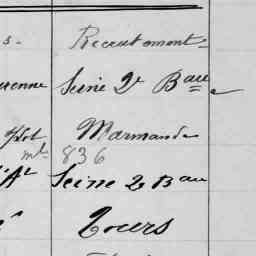 s. Recrutement
renne Seine 2e Bau
Marmande
mle 836
Seine 2e Bau
Tours